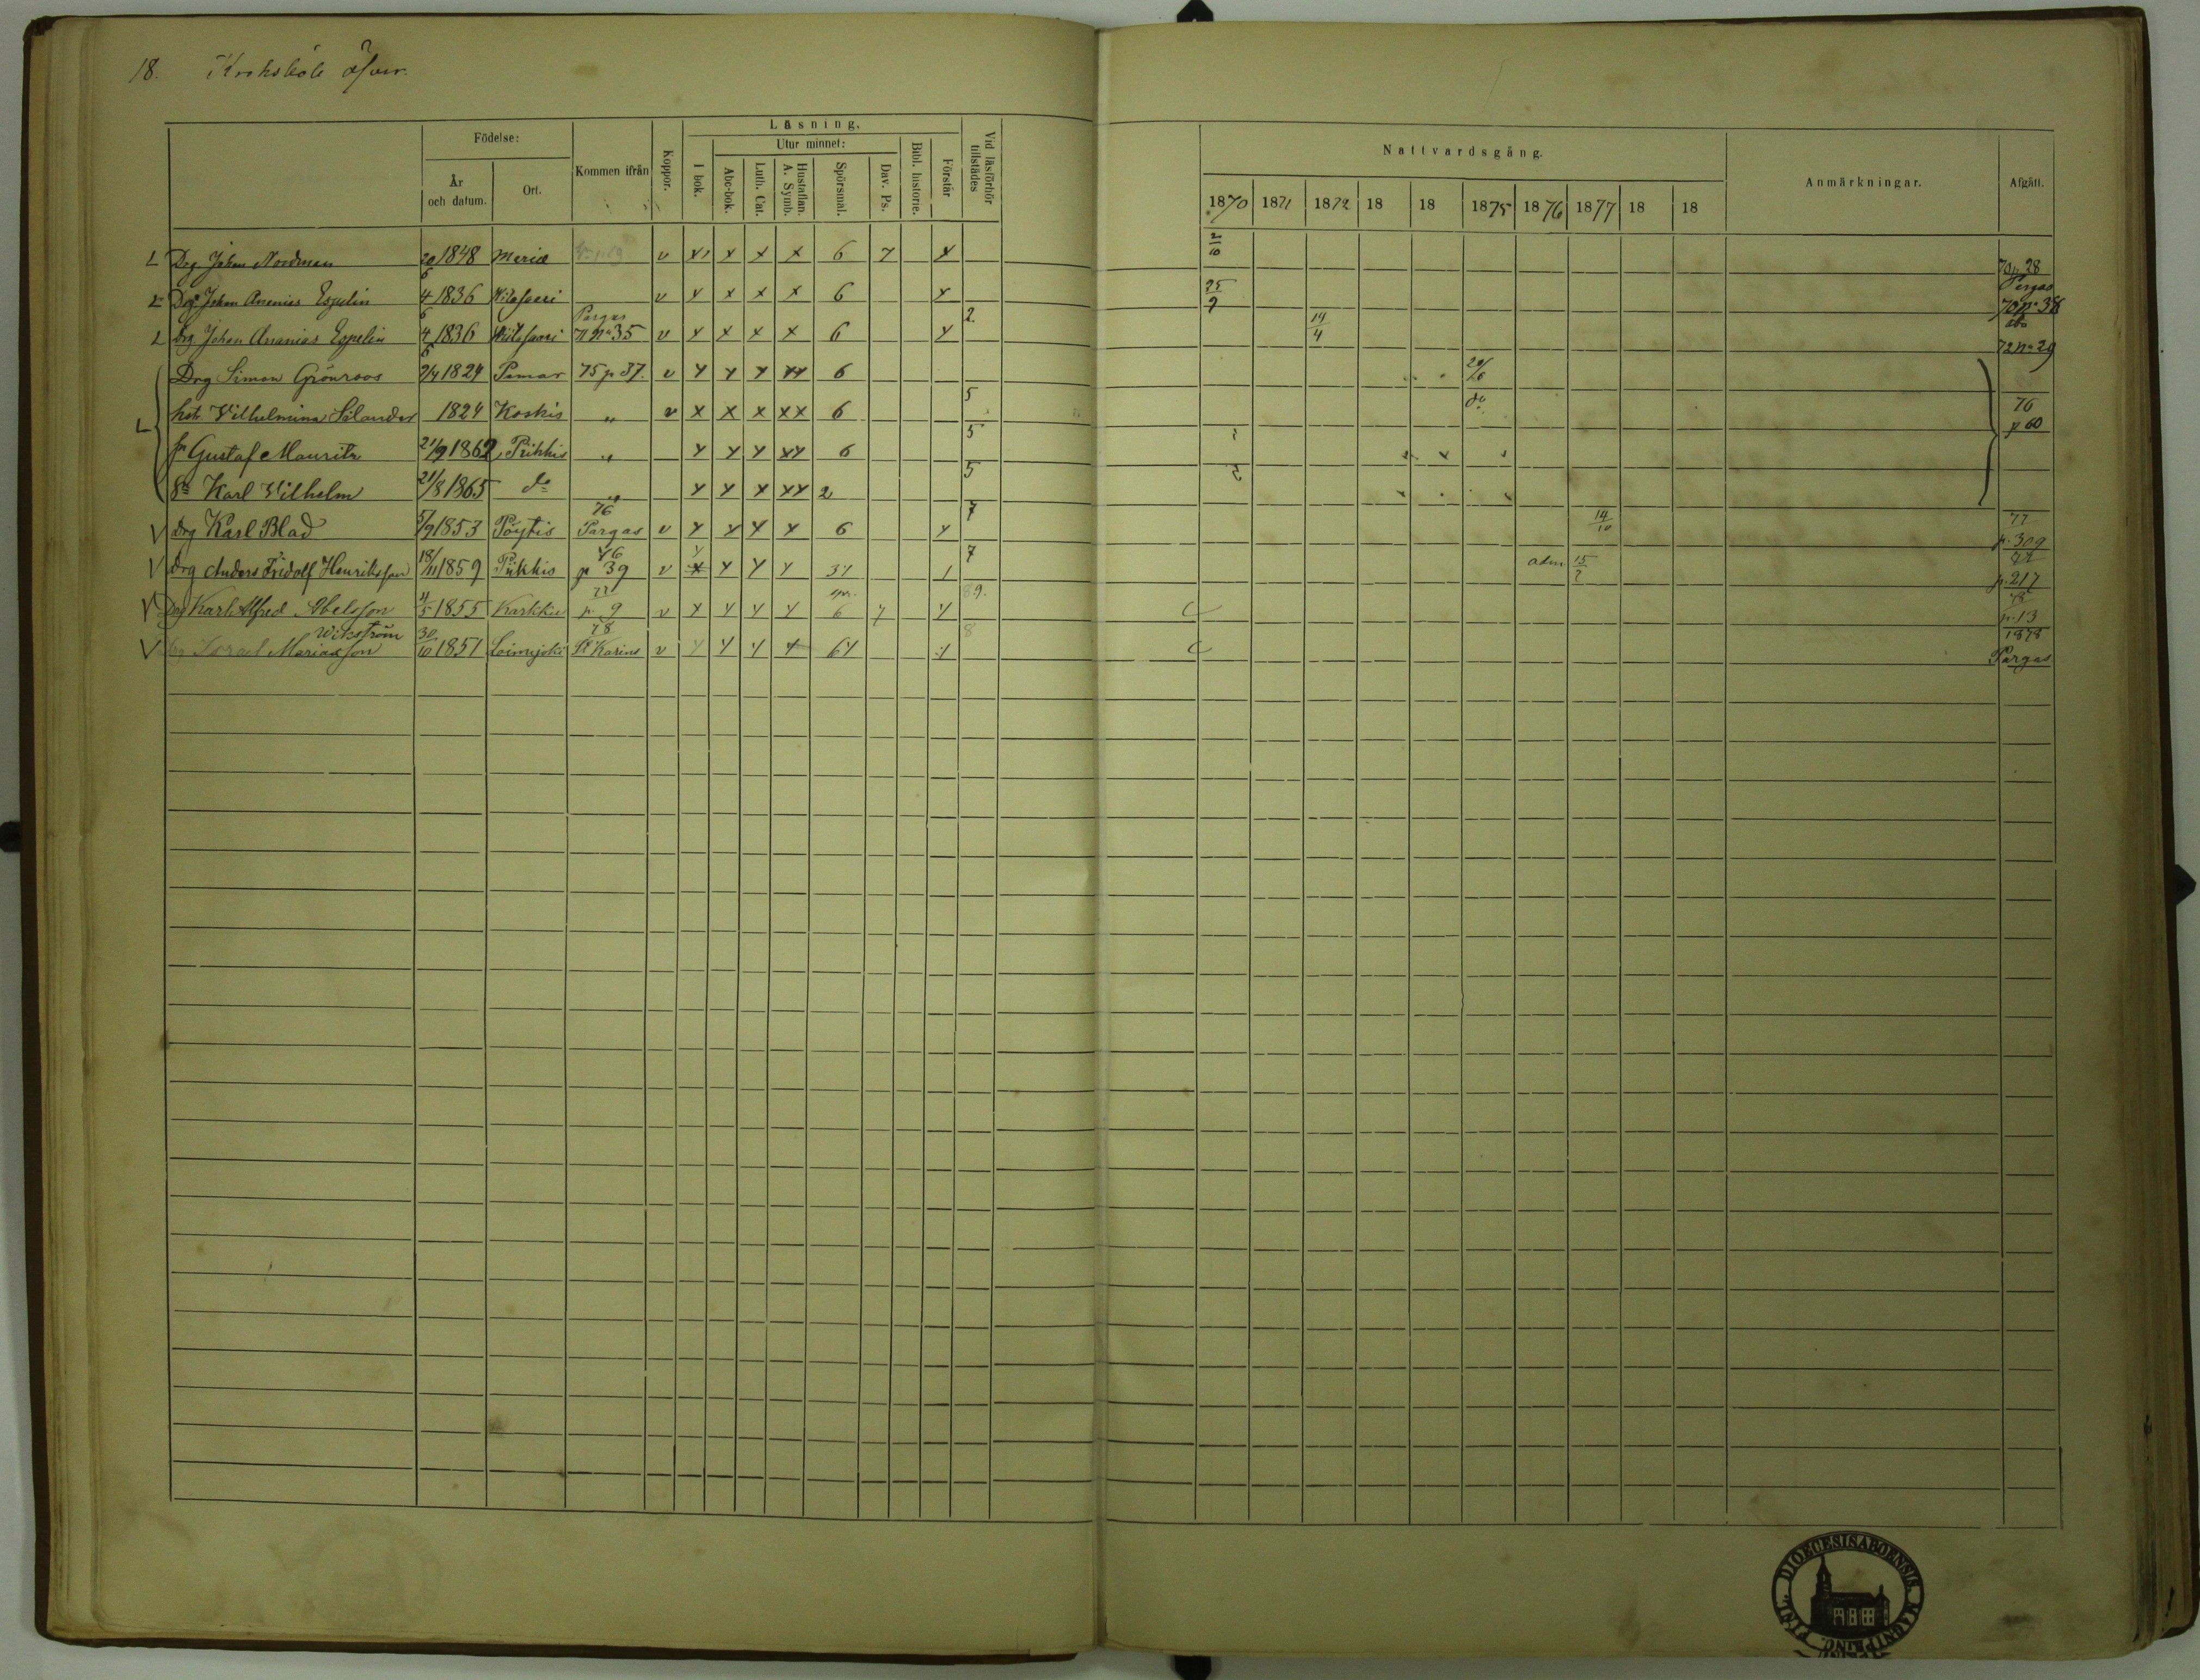 18. Kroksböle öfver.
Födelse: Kommen ifrån Koppor. Läsning. Vid läsförhör tillstädes
År och datum. Ort. I bok. Utur minnet: Bibl. historie. Förstår
Abc-bok. Luth. Cat. Hustaflan. A. Symb. Spörsmål. Dav. Ps.
Nattvardsgång. Anmärkningar. Afgått.
1870 1871 1872 18 18 1875 1876 1877 18 18
L Drg. Johan Nordman 20/6 1848 Meria v x x x x 6 7 x 2/10 70 p. 28
L Drg Johan Ananias Espelin 4/6 1836 Wiitasaari v x x x x 6 x 25/9 Pargas 70 No 38
L Drg Johan Ananias Espelin 4/6 1836 Wiitasaari Pargas 71 No 35 v x x x x 6 x 2 14/4 Åbo 72 No 29
L Drg Simon Grönroos 1824 Pemar 75 p 37. v x x x xx 6 29/6
hst. Vilhelmina Silander 1824 Koskis " v x x x xx 6 5 do 76 p 60
Gustaf Mauritz 21/9 1862 Piikkis " x x x xx 6 5
Sn Karl Vilhelm 21/8 1865 do x x x xx 2 5
V Drg Karl Blad 5/9 1853 Pöytis 76 Pargas v x x x x 6 x 7 14/10 77 p. 309
V Drg Anders Fridolf Henriksson 18/11 1859 Piikkis 76 p 39 v x x x x 7 adm. 15/7 p. 217
V Drg Karl Alfred Abelsson 4/5 1855 Karkku 77 p. 9 v x x x x 6 7 x 89. 78 p. 13
Wikström
V Drg Israel Mariasson 30/10 1851 Loimijoki 78 St Karins v x x x x x 8 1878 Pargas
DIOECESIS ABOENSIS